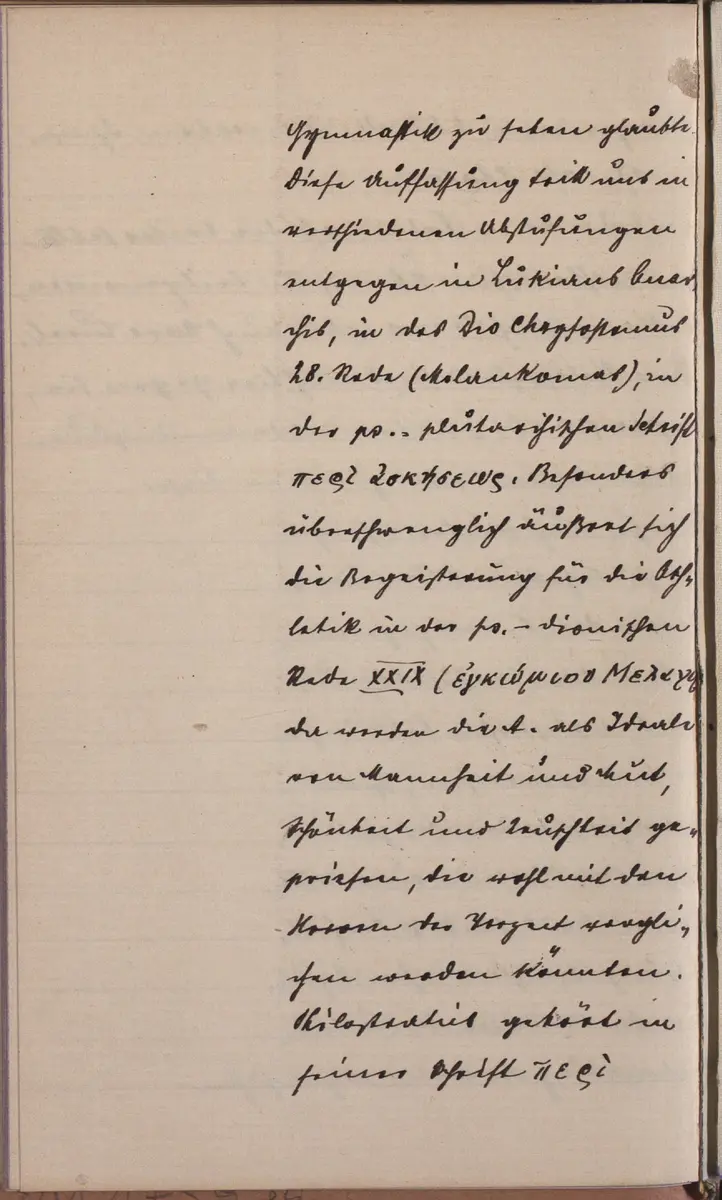 Gymnastik zu sehen glaubte.
Diese Auffassung tritt uns in
verschiedenen Abstufungen
entgegen in Lukians Anar-
chis, in des Dio Chrysostomus
28. Rede (Melankomas), in
der ps.-plutarchischen Schrift
περὶ ἀσκήσεως. Besonders
überschwenglich äußert sich
die Begeisterung für die Ath-
letik in der ps.-dionischen
Rede XXIX (ἐγκώμιον
da werden die A. als Ideale
von Mannheit und Mut,
Schönheit und Keuschheit ge-
priesen, die wohl mit den
Heroen der Vorzeit vergli-
chen werden könnten.
Philostratus gehört in
seiner Schrift περὶ